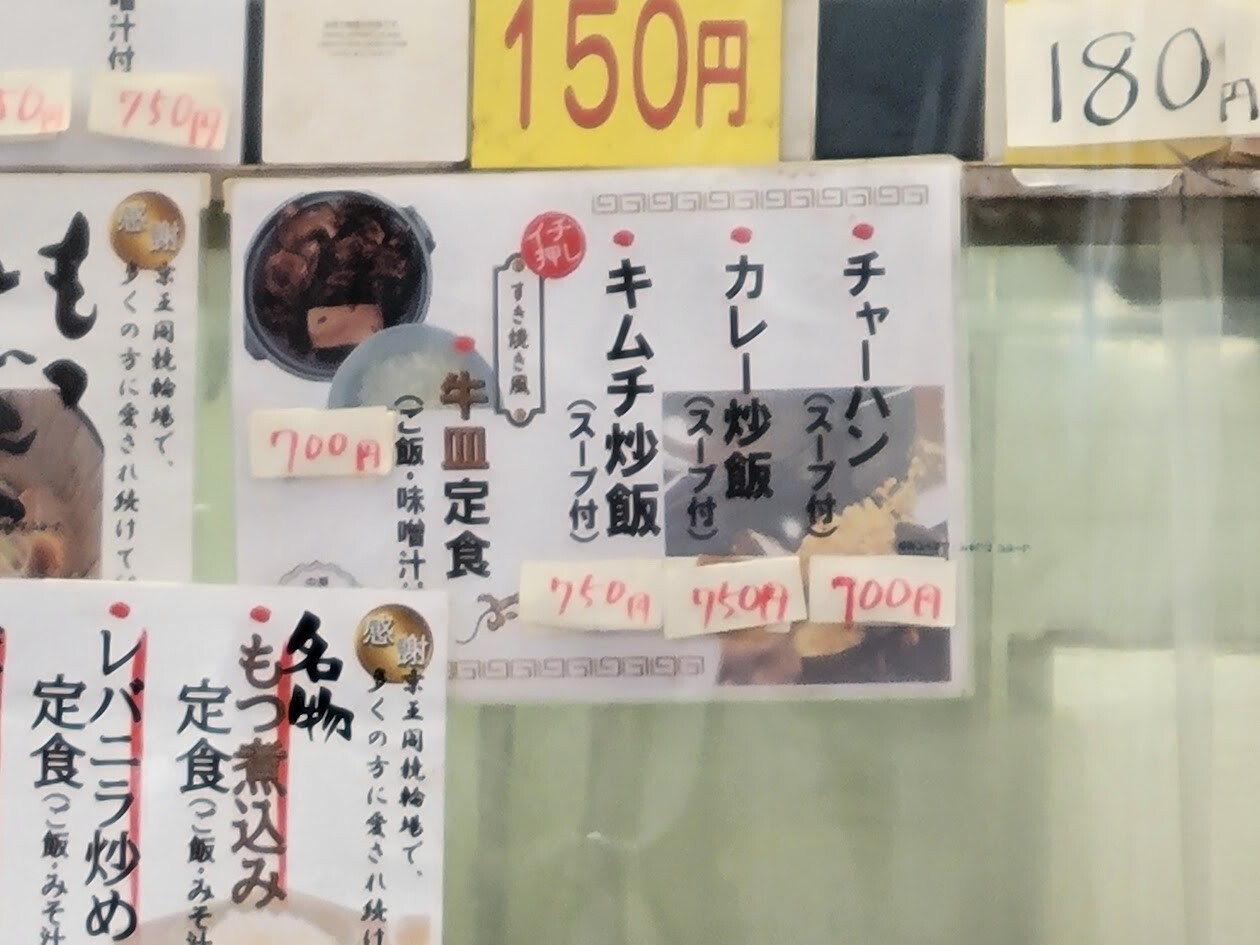 噌汁付
50円
750円
150円
180円
感謝
京王閣競輪場で、
多くの方に愛され続けて
も
つ
チャーハン
(スープ付)
700円
カレー炒飯
(スープ付)
750円
キムチ炒飯
(スープ付)
750円
イチ押し
すき焼き風
牛皿定食
(ご飯・味噌汁
700円
感謝
京王閣競輪場で、
多くの方に愛され続け
名物
もつ煮込み
定食(ご飯・みそ汁
レバニラ炒め
定食(ご飯・みそ汁